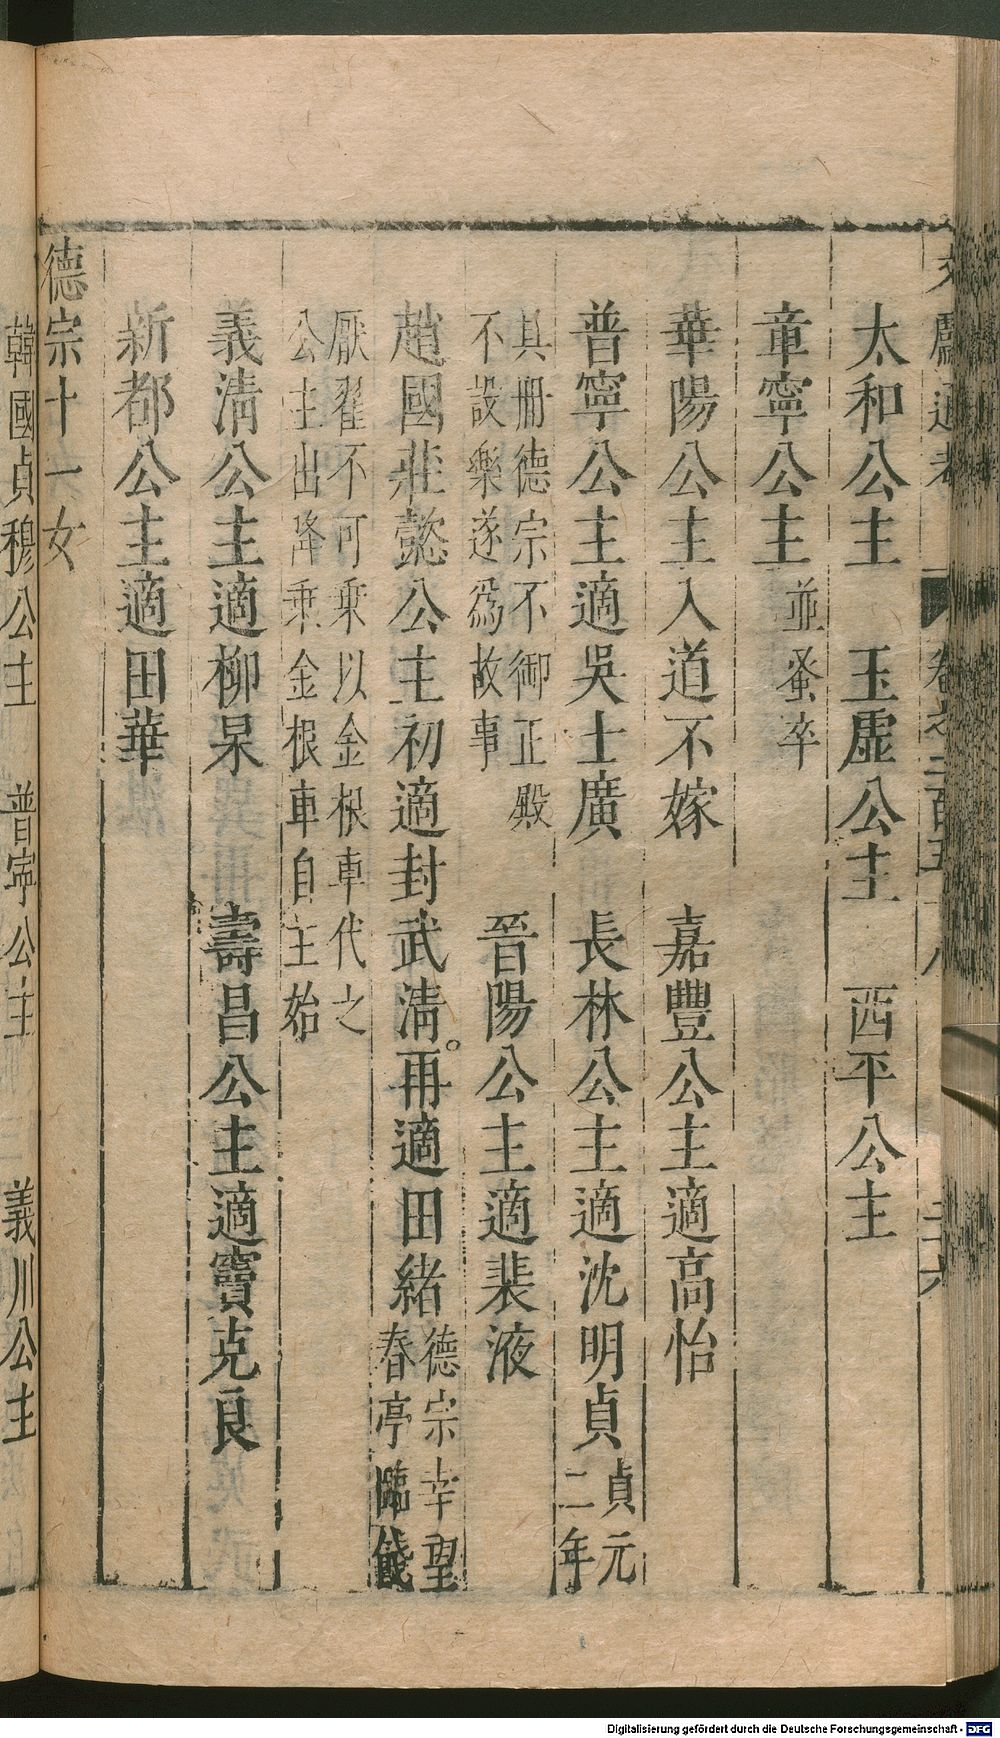 太和公主　玉虛公主　西平公主
章寧公主並蚤卒
華陽公主入道不嫁　嘉豐公主適高怡
普寧公主適吳士廣　長林公主適沈明貞貞元二年
其冊德宗不御正殿
不設樂遂爲故事　晉陽公主適裴液
趙國莊懿公主初適封武淸。再適田緒德宗幸望春亭臨餞
厭翟不可乗以金根車代之
公主出降乗金根車自主始
義淸公主適柳杲　壽昌公主適竇克良
新都公主適田華
德宗十一女
韓國貞穆公主　普寧公主　義川公主
Digitalisierung gefördert durch die Deutsche Forschungsgemeinschaft - DFG